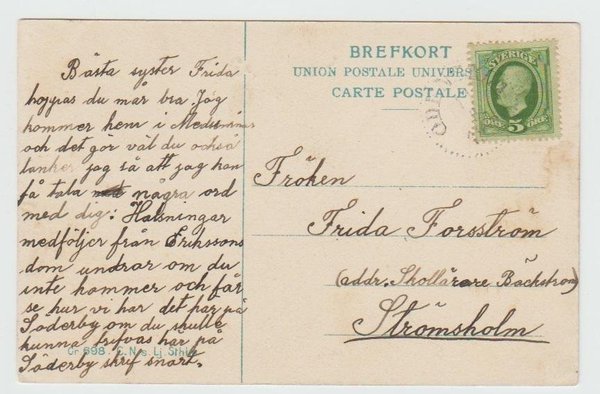 Bästa syster Frida
hoppas du mår bra. Jag
kommer hem i
och det gör väl du också
tanker jag så att jag kan
få tala några ord
med dig. Halsningar
medföljer från Erikssons
dom undrar om du
inte kommer och får
se hur vi har det här på
Söderby om du skulle
kunna trifvas här på
Söderby skrif snart.
Gr. 698. C. N:s Lj. Sthlm
BREFKORT
UNION POSTALE UNIVERS
CARTE POSTALE
SVERIGE
5
ÖRE ÖRE
Fröken
Frida Forsström
(addr. Skollärare Bäckstrom)
Strömsholm